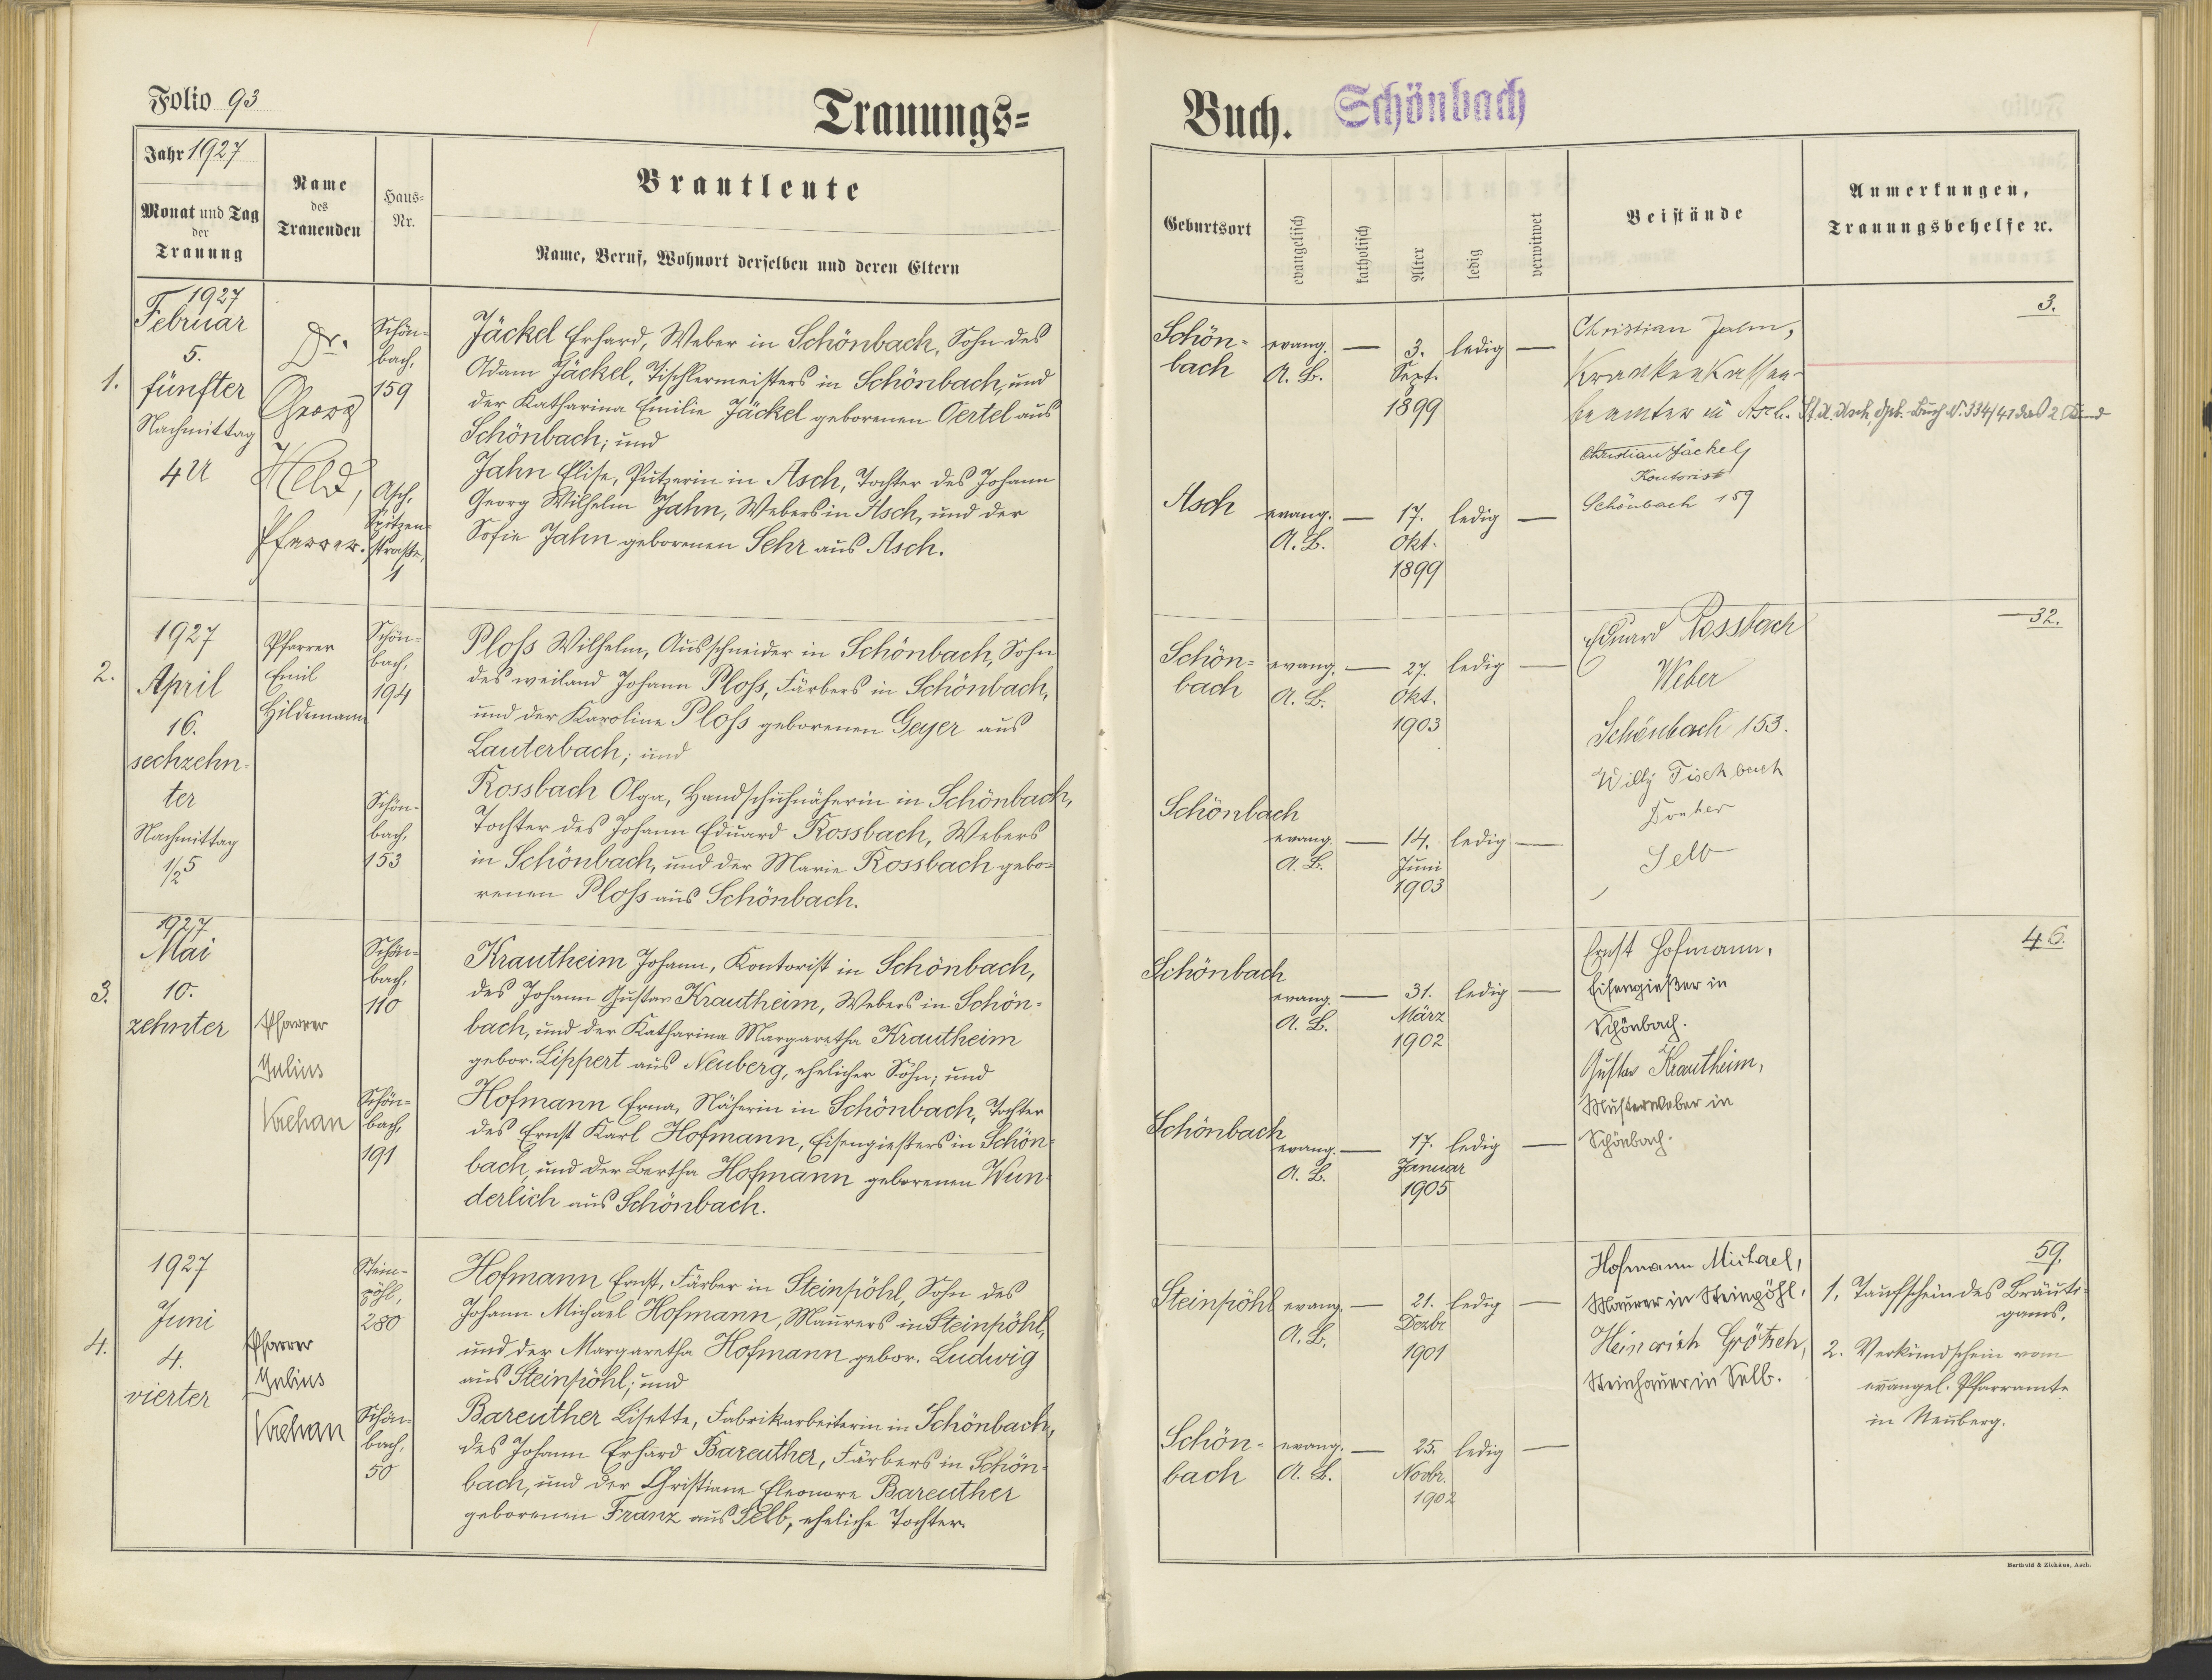 Folio 93
Trauungs-
Jahr 1927
Monat und Tag
der
Trauung
Name
des
Trauenden
Haus-
Nr.
Brautleute
Name, Beruf, Wohnort derselben und deren Eltern
1.
1927
Februar
5.
fünfter
Nachmittag
4 U
Dr.
Georg
Held,
Pfarrer.
Schön-
bach,
159
Asch,
Spitzen-
straße,
1
Jäckel Erhard, Weber in Schönbach, Sohn des
Adam Jäckel, Tischlermeisters in Schönbach, und
der Katharina Emilie Jäckel geborenen Oertel aus
Schönbach; und
Jahn Elise, Putzerin in Asch, Tochter des Johann
Georg Wilhelm Jahn, Webers in Asch, und der
Sofie Jahn geborenen Sehr aus Asch.
2.
1927
April
16.
sechzehn-
ter
Nachmittag
1/2 5
Pfarrer
Emil
Hildemann
Schön-
bach,
194
Schön-
bach,
153
Ploß Wilhelm, Ausschneider in Schönbach, Sohn
des weiland Johann Ploß, Färbers in Schönbach,
und der Karoline Ploß geborenen Geyer aus
Lauterbach; und
Rossbach Olga, Handschuhnäherin in Schönbach,
Tochter des Johann Eduard Rossbach, Webers
in Schönbach, und der Marie Rossbach gebo-
renen Ploß aus Schönbach.
3.
1927
Mai
10.
zehnter
Pfarrer
Julius
Krehan
Schön-
bach,
110
Schön-
bach,
191
Krautheim Johann, Kontorist in Schönbach,
des Johann Gustav Krautheim, Webers in Schön-
bach, und der Katharina Margaretha Krautheim
gebor. Lippert aus Neuberg, ehelicher Sohn; und
Hofmann Erna, Näherin in Schönbach, Tochter
des Ernst Karl Hofmann, Eisengießers in Schön-
bach, und der Bertha Hofmann geborenen Wun-
derlich aus Schönbach.
4.
1927
Juni
4.
vierter
Pfarrer
Julius
Krehan
Stein-
pöhl,
280
Schön-
bach,
50
Hofmann Ernst, Färber in Steinpöhl, Sohn des
Johann Michael Hofmann, Maurers in Steinpöhl,
und der Margaretha Hofmann gebor. Ludwig
aus Steinpöhl; und
Bareuther Lisette, Fabrikarbeiterin in Schönbach,
des Johann Erhard Bareuther, Färbers in Schön-
bach, und der Christiane Eleonore Bareuther
geborenen Franz aus Selb, eheliche Tochter.
Buch. Schönbach
Geburtsort
evangelisch
katholisch
Alter
ledig
verwitwet
Beistände
Anmerkungen,
Trauungsbehelfe ꝛc.
Schön-
bach
evang.
A. B.
—
3.
Sept.
1899
ledig
—
Asch
evang.
A. B.
—
17.
Okt.
1899
ledig
—
Christian Jahn,
Krankenkassen-
beamter in Asch.
Christian Jäckel,
Kontorist
Schönbach 159
3.
St. A. Asch, Geb. Buch Nr. 334/41 das 2. Kind
Schön-
bach
evang.
A. B.
—
27.
Okt.
1903
ledig
—
Schönbach
evang.
A. B.
—
14.
Juni
1903
ledig
—
Eduard Rossbach
Weber
Schönbach 153.
Willy Fischbach
Dreher
Selb
32.
Schönbach
evang.
A. B.
—
31.
März
1902
ledig
—
Schönbach
evang.
A. B.
—
17.
Januar
1905
ledig
—
Ernst Hofmann,
Eisengießer in
Schönbach.
Gustav Krautheim,
Musterweber in
Schönbach.
46.
Steinpöhl
evang.
A. B.
—
21.
Dezbr
1901
ledig
—
Schön-
bach
evang.
A. B.
—
25.
Novbr.
1902
ledig
—
Hofmann Michael,
Maurer in Steinpöhl.
Heinrich Grötsch,
Steinhauer in Selb.
59.
1. Taufschein des Bräuti-
gams.
2. Verkündschein vom
evangel. Pfarramte
in Neuberg.
Berthold & Zichäus, Asch.